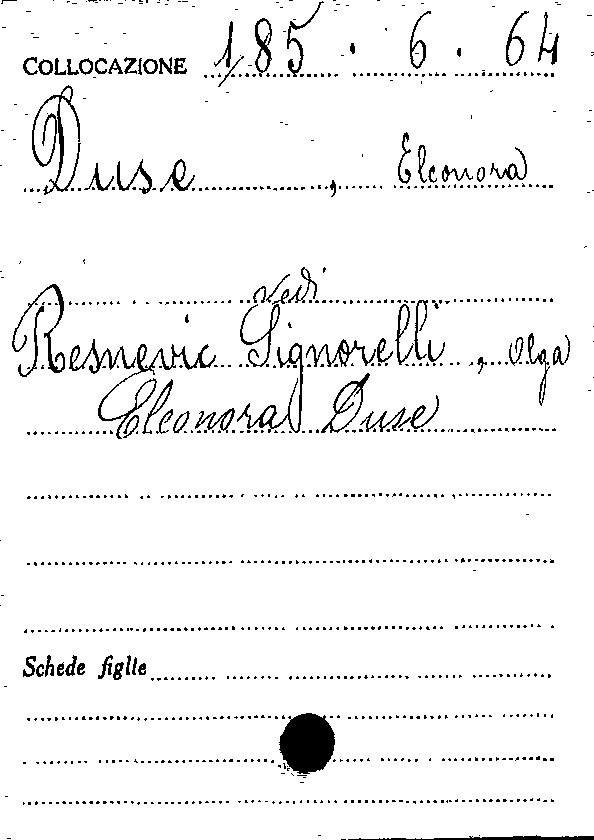 COLLOCAZIONE 185 . 6 . 64
Duse , Eleonora
vedi
Resnevic Signorelli , Olga
Eleonora Duse
Schede figlie